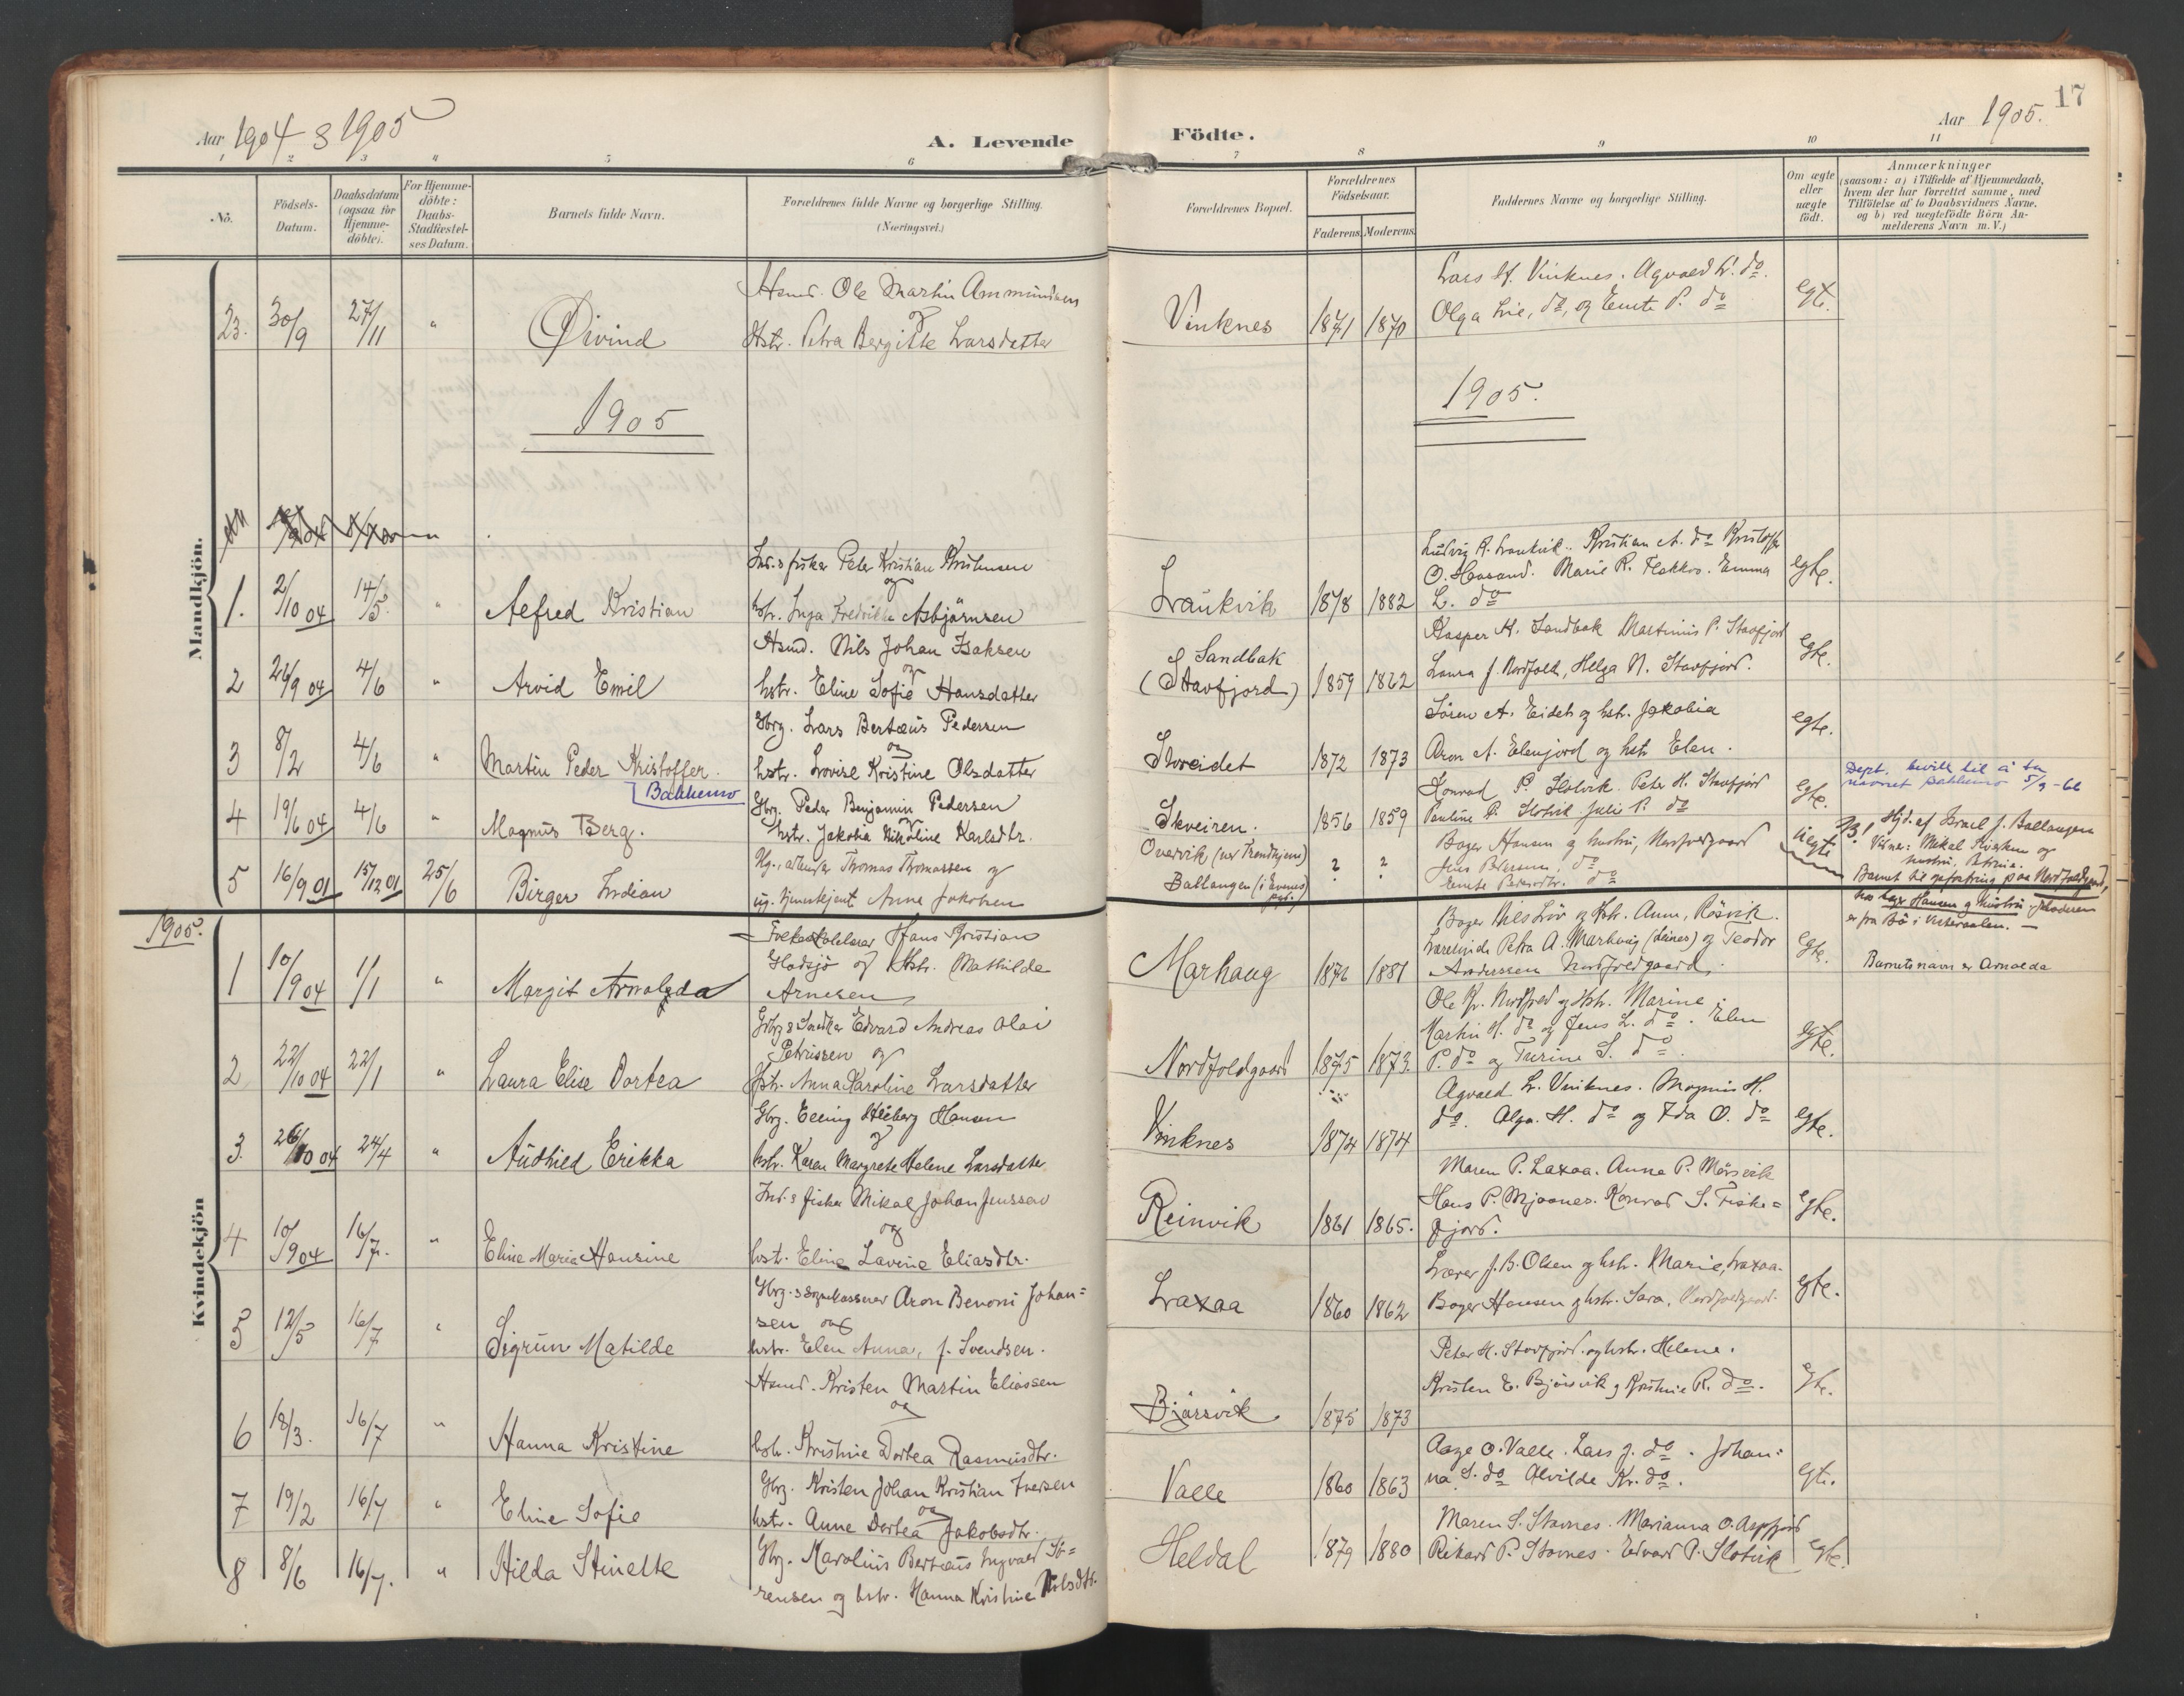 Aar 1904 & 1905
A. Levende Födte.
Aar 1905.
17
1 2 3 4 5 6 7 8 9 10 11
No.
Födsels-Datum.
Daabsdatum (ogsaa for Hjemme-döbte).
For Hjemme-döbte: Daabs-Stadfæstel-ses Datum.
Barnets fulde Navn.
Forældrenes fulde Navne og borgerlige Stilling. (Næringsvei.)
Forældrenes Bopæl.
Forældrenes Födselsaar.
Faderens. Moderens.
Faddernes Navne og borgerlige Stilling.
Om ægte eller uægte födt.
Anmærkninger
(saasom: a) i Tilfælde af Hjemmedaab, hvem der har forrettet samme, med Tilföielse af to Daabsvidners Navne. og b) ved uægtefödte Börn An-melderens Navn m. V.)
Mandkjön.
23. 30/9 27/11 " Øivind
Hsmd. Ole Martin Ammundsen
og
Hstr. Petra Bergitte Larsdatter
Vinknes 1871 1870
Lars H. Vinknes. Agvald L. do.
Olga Lie, do, og Emte P. do
egte.
1905
1905.
1. 2/10 04 14/5. " Alfred Kristian
Ind. & fisker Peter Kristian Kristensen
og
hstr. Inga Fredrikke Asbjörnsen
Laukvik 1878 1882
Ludvig R. Laukvik. Kristian A. do Kristoffer
O. Haasand. Marie R. Flakkos. Emma
L. do
egte.
2 26/9 04 4/6 " Arvid Emil
Hsmd. Nils Johan Isaksen
og
hstr. Eline Sofie Hansdatter
Sandbak
(Stavfjord) 1859 1862
Kasper H. Sandbak Martinus P. Stavfjord
Laura J. Nordfold, Helga N. Stavfjord.
egte.
3 8/2 4/6 " Martin Peder Kristoffer.
Gbrg. Lars Bertæus Pedersen
og
hstr. Lovise Kristine Olsdatter
Storeidet 1872 1873
Sören A. Eidet og hstr. Jakobia
Aron A. Elenjord og hstr Elen.
egte.
Bakkemo
4 19/6 04 4/6 " Magnus Berg.
Gbrg. Peder Benjamin Pedersen
og
hstr. Jakobia Nikoline Karlsdtr.
Skveiren. 1856 1859
Konrad P. Slotvik. Peter H. Stavfjord
Pauline P. Slotvik Julie P. do
egte.
Dept. bevill. til å ta
navnet Bakkemo 5/9-66
5 16/9 01 15/12 01 25/6 Birger Indian
Ug., Thomas Thomassen og
ug. tjenestepige Anne Jakobsen
Overvik (ner Trondhjem) ? ?
Ballangen (i Evenes)
Boger Hansen og hustru, Nordfoldgaard
Jens Pedersen, do
do
uegte
NB! Hjd. af Israel J. Ballangen
Vidne: Mikal og
hustru, Petrine.
Barnet til opfostring paa Nordfoldgaard,
hos Boger Hansen og hustru. Moderen
er fra Bö i Vesteraalen. —
1905.
Kvindekjön
1 10/9 04 1/1 " Margit Arnolgda
Folkeskolelærer Hans Kristian
Hadsjö og Hstr. Mathilde
Arnesen
Marhaug 1876 1881
Boger Nils Löv og hstr. Anna, Rösvik.
Lærerinde Petra A. Marhaug (Leines) og Teodor
Anderssen Nordfoldgaard.
egte.
Barnets navn er Arnolda
2 22/10 04 22/1 " Laura Elise Dortea
Gbrg & Snedker Edvard Andreas Olai
Petrissen og
Hstr. Anna Karoline Larsdatter
Nordfoldgaard 1875 1873.
Ole Kr. Nordfold og Hstr. Marine.
Martin H. do og Jens L. do. Elen
P. do og Turine S. do.
egte.
3. 26/10 04 24/4 " Audhild Erikka
Gbrg. Elling Hansen
og
hstr. Karen Margrete Helene Larsdatter
Vinknes 1874 1874
Agvald L. Vinknes. Magnus H.
do. Olga. H. do og Ida O. do
egte.
4 10/9 04 16/7. " Eline Maria Hansine
Ind. & fisker Mikal Johan Jenssen
og
hstr. Eline Lavine Eliasdtr.
Reinvik 1861 1865.
Maren P. Laxaa. Anna P. Mörsvik
Hans P. Mjaanes. Konrad S. Fiske=
fjord.
egte.
5 12/5 16/7 " Sigrun Matilde
Gbrg. & Aron Benoni Johan=
sen og
hstr. Elen Anna, f. Svendsen.
Laxaa 1860 1862
Lærer J. B. Olsen og hstr. Marie, Laxaa.
Boger Hansen og hstr. Sara, Nordfoldgaard.
egte.
6 18/3. 16/7 " Hanna Kristine
Hsmd. Kristen Martin Eliassen
og
hstr. Kristine Dortea Rasmusdtr.
Bjärsvik 1875 1873
Peter H. Stavfjord. og hstr. Helene.
Kristen E. Björsvik og Kristine R. do.
egte.
7 19/2 16/7 " Eline Sofie
Gbrg. Kristen Johan Kristian Iversen
og
hstr. Anne Dortea Jakobsdtr.
Valle 1860 1863
Aage O. Valle. Lars J. do. Johan=
na S. do Alvilde Kr. do.
egte.
8 8/6 16/7. " Hilda Stinette
Gbrg. Karolius Bertæus Ingvald Sö=
rensen og hstr. Hanna Kristine Nilsdtr.
Heldal 1879 1880
Maren S. Stavnes. Marianna O. Aspfjord
Rikard P. Stavnes. Edvard P. Slotvik
egte.